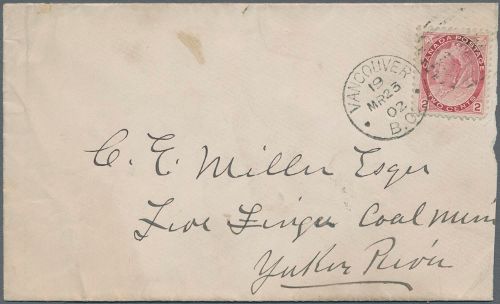 CANADA POSTAGE
2 TWO CENTS 2
VANCOUVER
19
MR 23
02
B.C.
C. E. Miller Esqr
Five Finger Coal Min
Yukon River